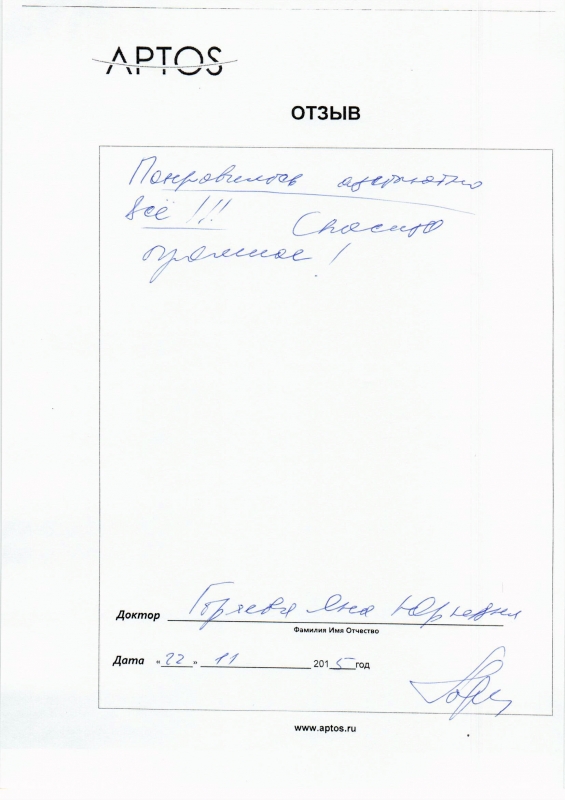 APTOS
ОТЗЫВ
Понравилось абсолютно
всё!!! Спасибо
огромное!
Доктор Горяева Яна Юрьевна
Фамилия Имя Отчество
Дата «22» 11 2015 год
www.aptos.ru